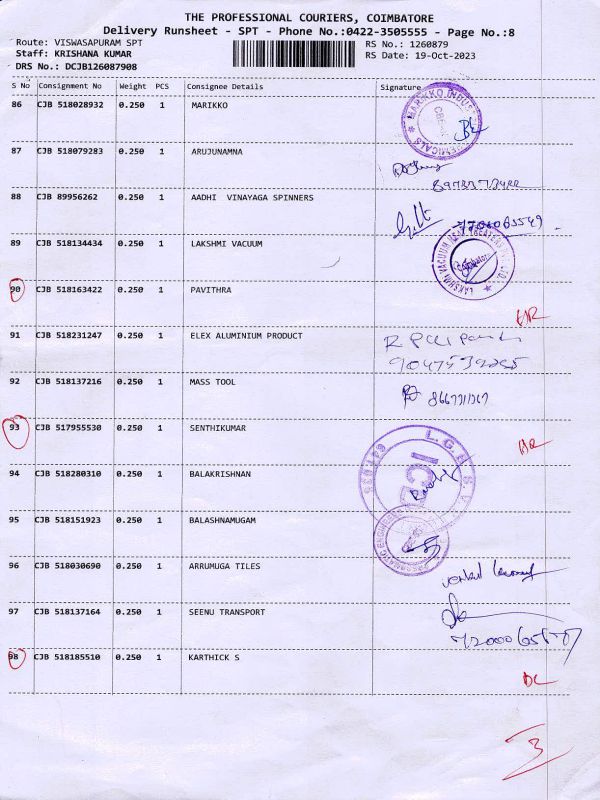 THE PROFESSIONAL COURIERS, COIMBATORE
Delivery Runsheet - SPT - Phone No.:0422-3505555 - Page No.:8
Route: VISWASAPURAM SPT RS No.: 1260879
Staff: KRISHANA KUMAR RS Date: 19-Oct-2023
DRS No.: DCJB126087908
S No Consignment No Weight PCS Consignee Details Signature
86 CJB 518028932 0.250 1 MARIKKO
87 CJB 518079283 0.250 1 ARUJUNAMNA
88 CJB 89956262 0.250 1 AADHI VINAYAGA SPINNERS
89 CJB 518134434 0.250 1 LAKSHMI VACUUM
90 CJB 518163422 0.250 1 PAVITHRA
91 CJB 518231247 0.250 1 ELEX ALUMINIUM PRODUCT
92 CJB 518137216 0.250 1 MASS TOOL
93 CJB 517955530 0.250 1 SENTHIKUMAR
94 CJB 518280310 0.250 1 BALAKRISHNAN
95 CJB 518151923 0.250 1 BALASHNAMUGAM
96 CJB 518030690 0.250 1 ARRUMUGA TILES
97 CJB 518137164 0.250 1 SEENU TRANSPORT
98 CJB 518185510 0.250 1 KARTHICK S
DL
3